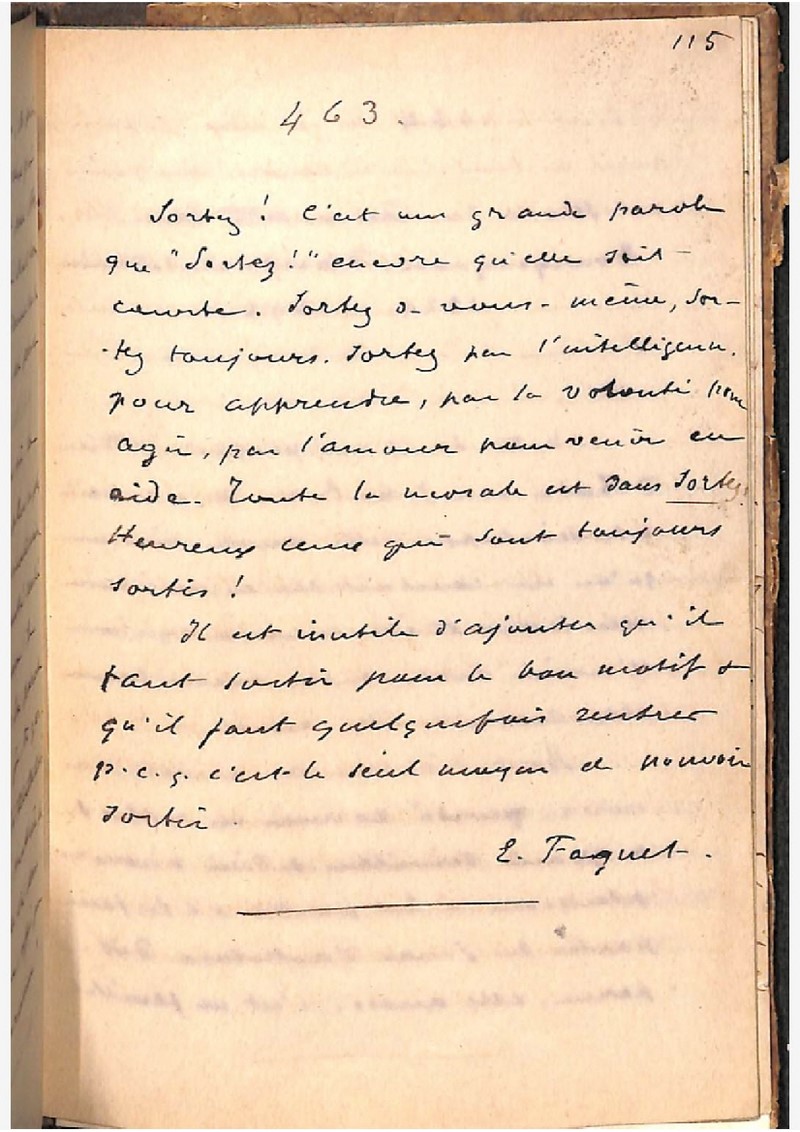 115
463.
Sortez ! C'est une grande parole
que "Sortez !" encore qu'elle soit
courte. Sortez de vous-même, sor-
tez toujours. Sortez par l'intelligence,
pour apprendre, par la volonté pour
agir, par l'amour pour venir en
aide. Toute la morale est dans Sortez.
Heureux ceux qui sont toujours
sortis !
Il est inutile d'ajouter qu'il
faut sortir pour le bon motif &
qu'il faut quelquefois rentrer
p. c. q. c'est le seul moyen de pouvoir
sortir.
E. Faguet.